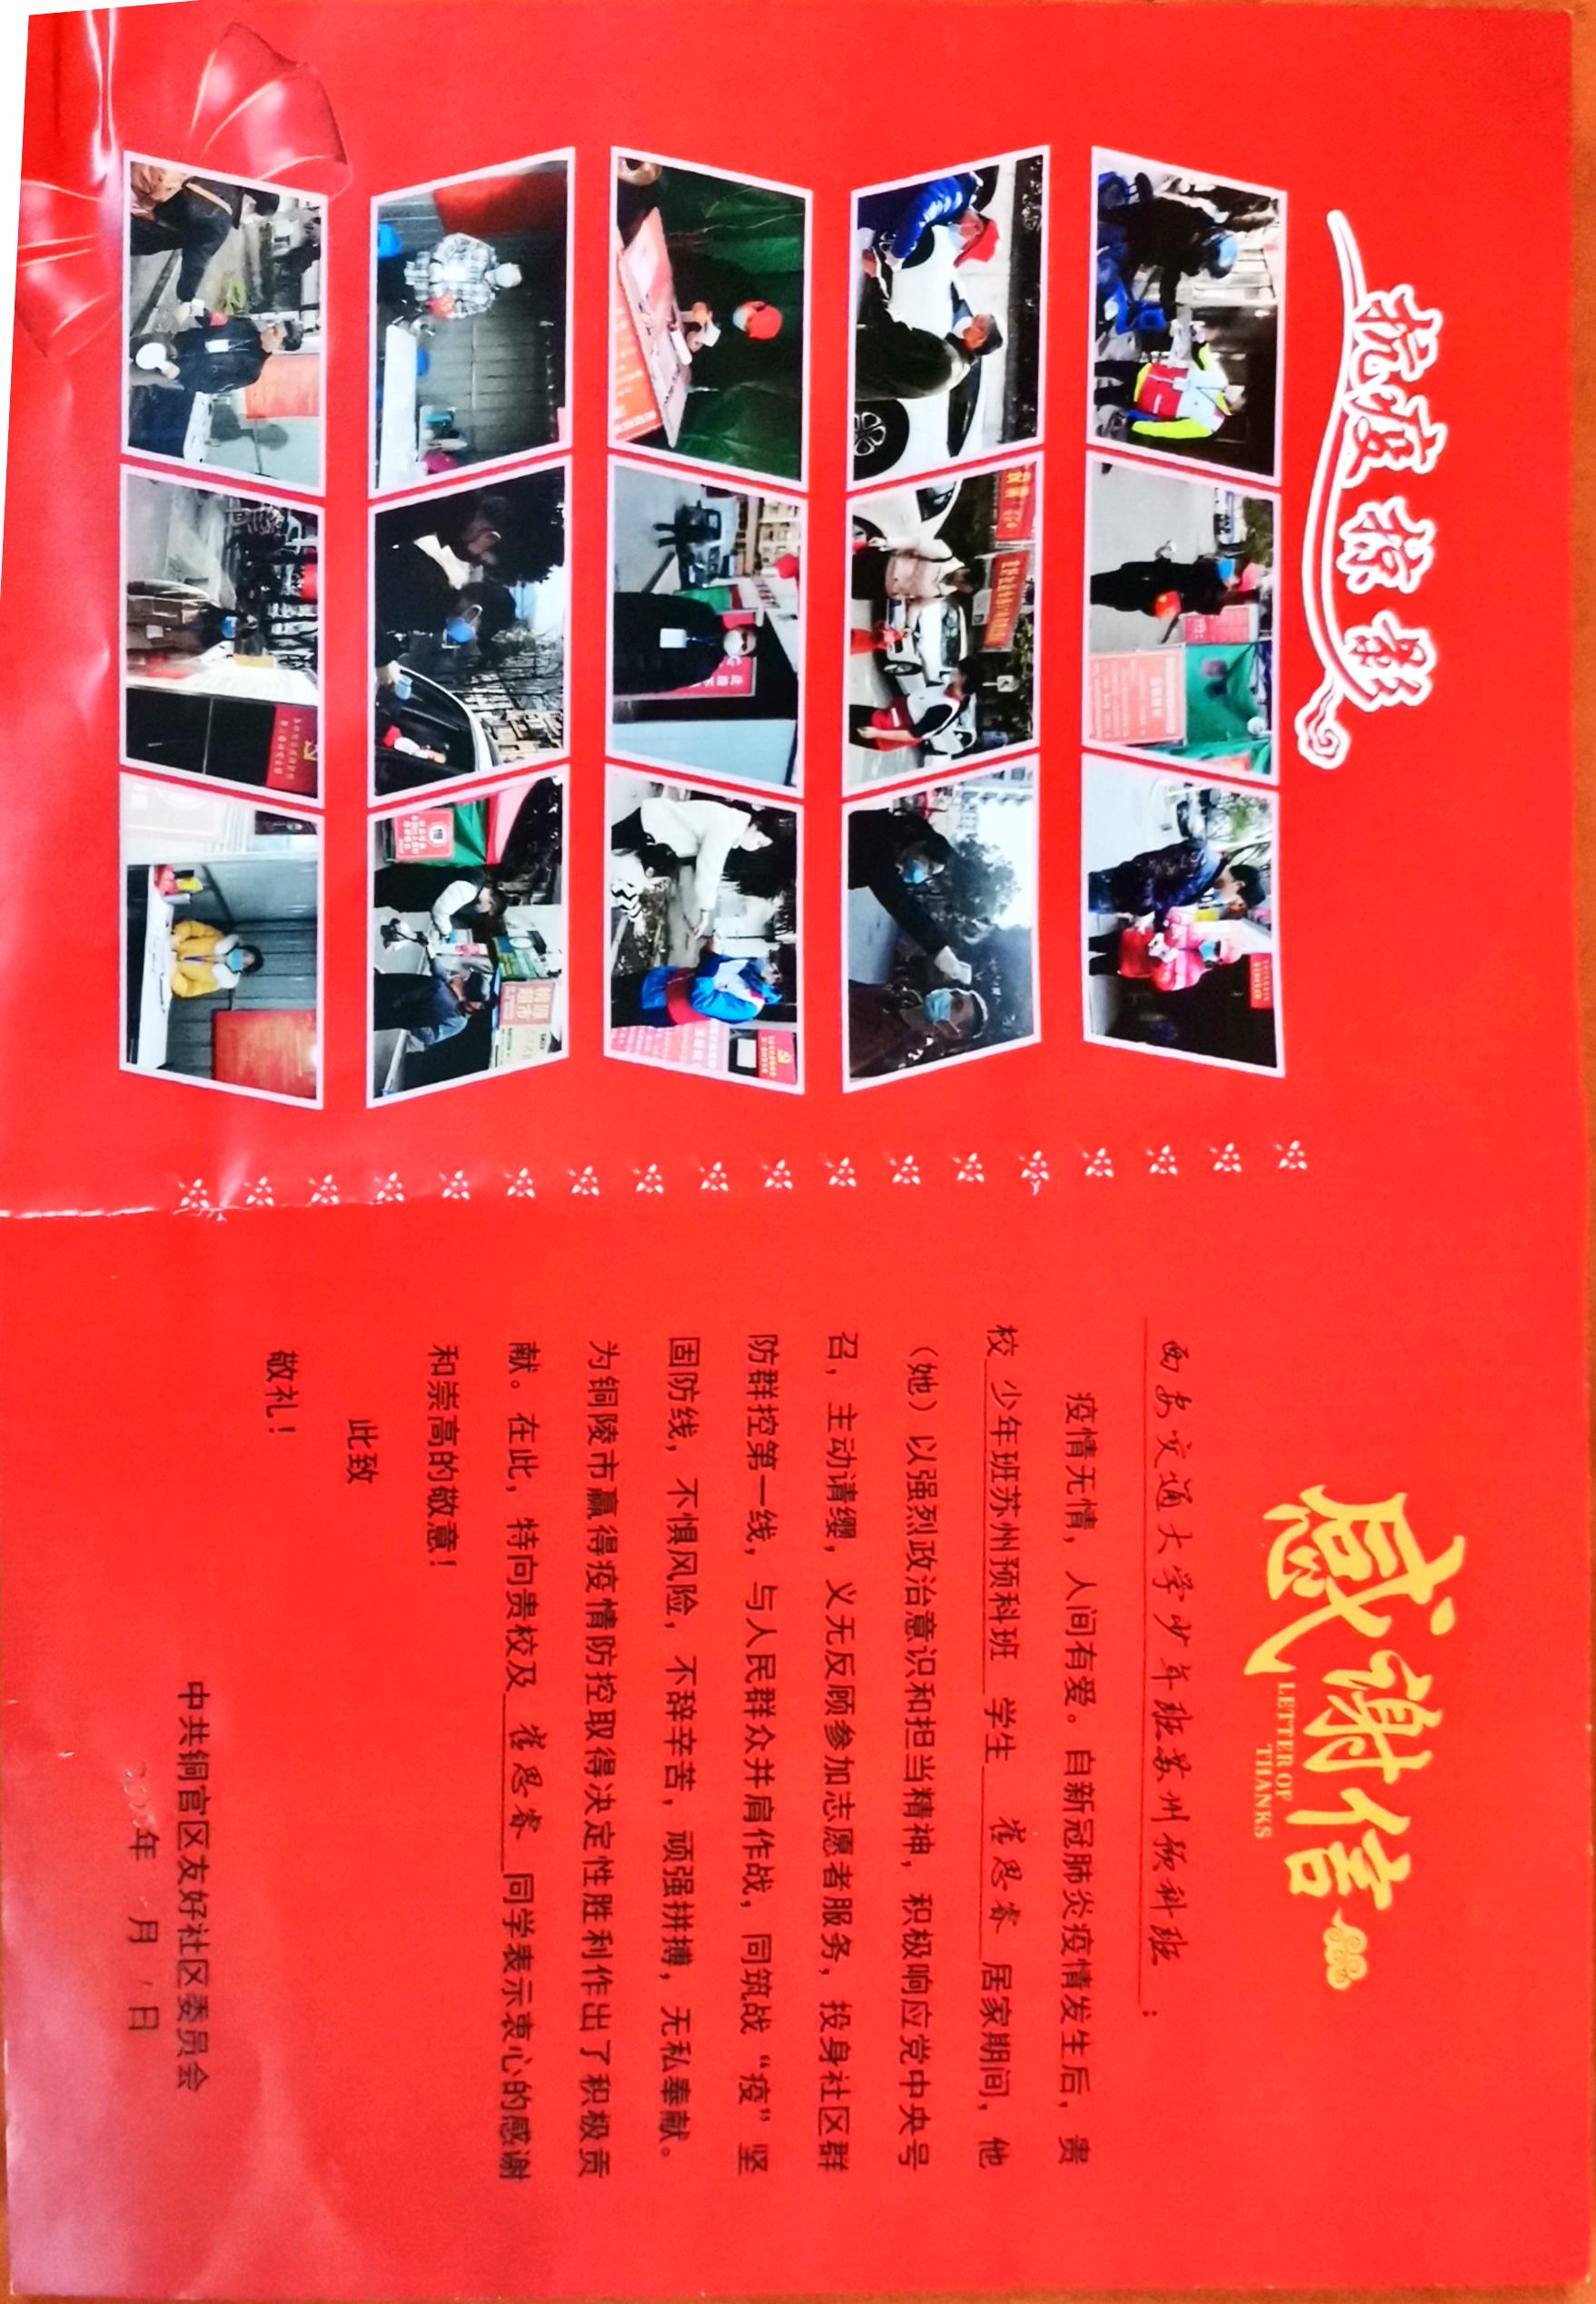 抗疫掠影
感谢信
LETTER OF
THANKS
西安交通大学少年班苏州预科班：
疫情无情，人间有爱。自新冠肺炎疫情发生后，贵
校 少年班苏州预科班 学生 崔思睿 居家期间，他
（她）以强烈政治意识和担当精神，积极响应党中央号
召，主动请缨，义无反顾参加志愿者服务，投身社区群
防群控第一线，与人民群众并肩作战，同筑战“疫”坚
固防线，不惧风险，不辞辛苦，顽强拼搏，无私奉献。
为铜陵市赢得疫情防控取得决定性胜利作出了积极贡
献。在此，特向贵校及 崔思睿 同学表示衷心的感谢
和崇高的敬意！
此致
敬礼！
中共铜官区友好社区委员会
年 月 日